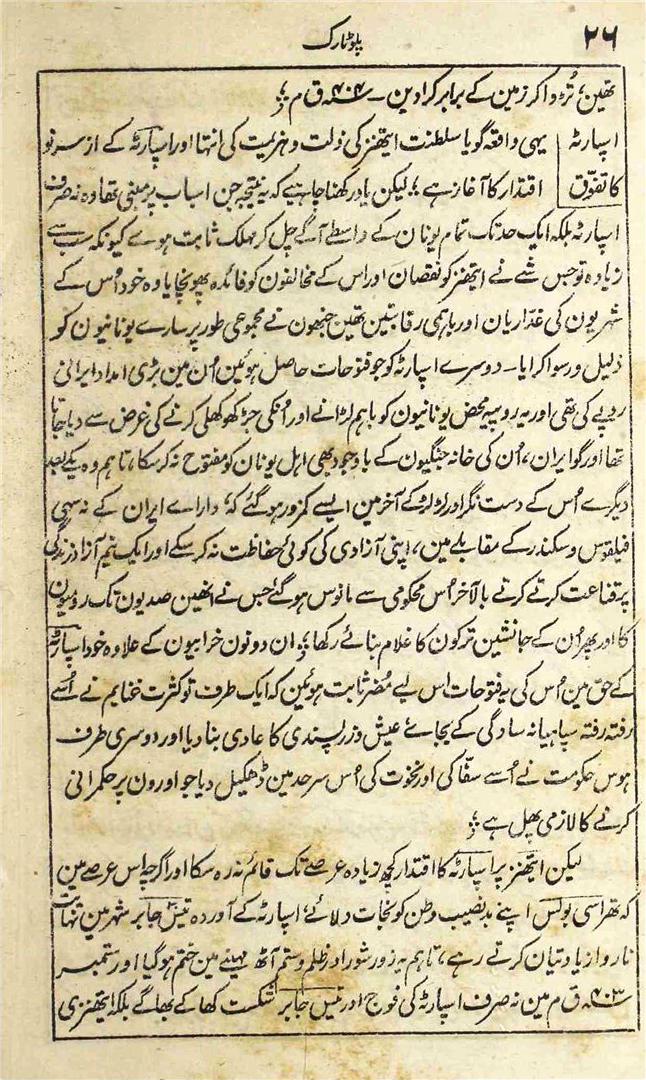 ۲۶
پلوٹارک
تھین، تُڑوا کر زمین کے برابر کرا دین ۔ سنہ ۴۰۴ ق م ؛
اسپارٹہ
کا تفوّق
یہی واقعہ گویا سلطنت ایتھنز کی ذلت و ہزیمت کی انتہا اور اسپارٹہ کے از سرنو
اقتدار کا آغاز ہے ؛ لیکن یاد رکھنا چاہیے کہ یہ نتیجہ جن اسباب پر مبنی تھا وہ نہ صرف
اسپارٹہ بلکہ ایک حد تک تمام یونان کے واسطے آگے چل کر مہلک ثابت ہوے کیونکہ سب سے
زیادہ تو جس شے نے ایتھنز کو نقصان اور اس کے مخالفون کو فائدہ پھونچایا وہ خود اُس کے
شہریون کی غداریان اور باہمی رقابتین تھین جنھون نے مجموعی طور پر سارے یونانیون کو
ذلیل و رسوا کرایا ۔ دوسرے اسپارٹہ کو جو فتوحات حاصل ہوئین اُن مین بڑی امداد ایرانی
روپے کی تھی اور یہ روپیہ محض یونانیون کو باہم لڑانے اور اُنکی جڑ کھوکھلی کرنے کی غرض سے دیا جاتا
تھا اور گو ایران، اُن کی خانہ جنگیون کے باوجود بھی اہل یونان کو مفتوح نہ کر سکا، تاہم وہ یکے بعد
دیگرے اُس کے دست نگر اور لڑ لڑ کے آخر مین ایسے کمزور ہو گئے کہ، دارائے ایران کے نہ سہی
فیلقوس و سکندر کے مقابلے مین، اپنی آزادی کی کوئی حفاظت نہ کر سکے اور ایک نیم آزاد زندگی
پر قناعت کرتے کرتے بالآخر اُس محکومی سے مانوس ہو گئے جس نے انھین صدیون تک رومیون
کا اور پھر اُن کے جانشین ترکون کا غلام بنائے رکھا ؛ ان دونون خرابیون کے علاوہ خود اسپارٹہ
کے حق مین اُس کی یہ فتوحات اس لیے مُضر ثابت ہوئین کہ ایک طرف تو کثرت غنایم نے اُسے
رفتہ رفتہ سپاہیانہ سادگی کے بجاے عیش و زر پسندی کا عادی بنا دیا اور دوسری طرف
ہوس حکومت نے اُسے سفّاکی اور نخوت کی اُس سرحد مین ڈھکیل دیا جو اورون پر حکمرانی
کرنے کا لازمی پھل ہے ؛
لیکن ایتھنز پر اسپارٹہ کا اقتدار کچھ زیادہ عرصے تک قائم نہ رہ سکا اور اگرچہ اس عرصے مین
کہ تھراسی بولس اپنے بدنصیب وطن کو نجات دلائے، اسپارٹہ کے آوردہ تیس جابر شہر مین نہایت
ناروا زیادتیان کرتے رہے، تاہم یہ زور شور اور ظلم و ستم آٹھ مہینے مین ختم ہو گیا اور ستمبر
سنہ ۴۰۳ ق م مین نہ صرف اسپارٹہ کی فوج اور تیس جابر شکست کھا کے بھاگے بلکہ ایتھنزی